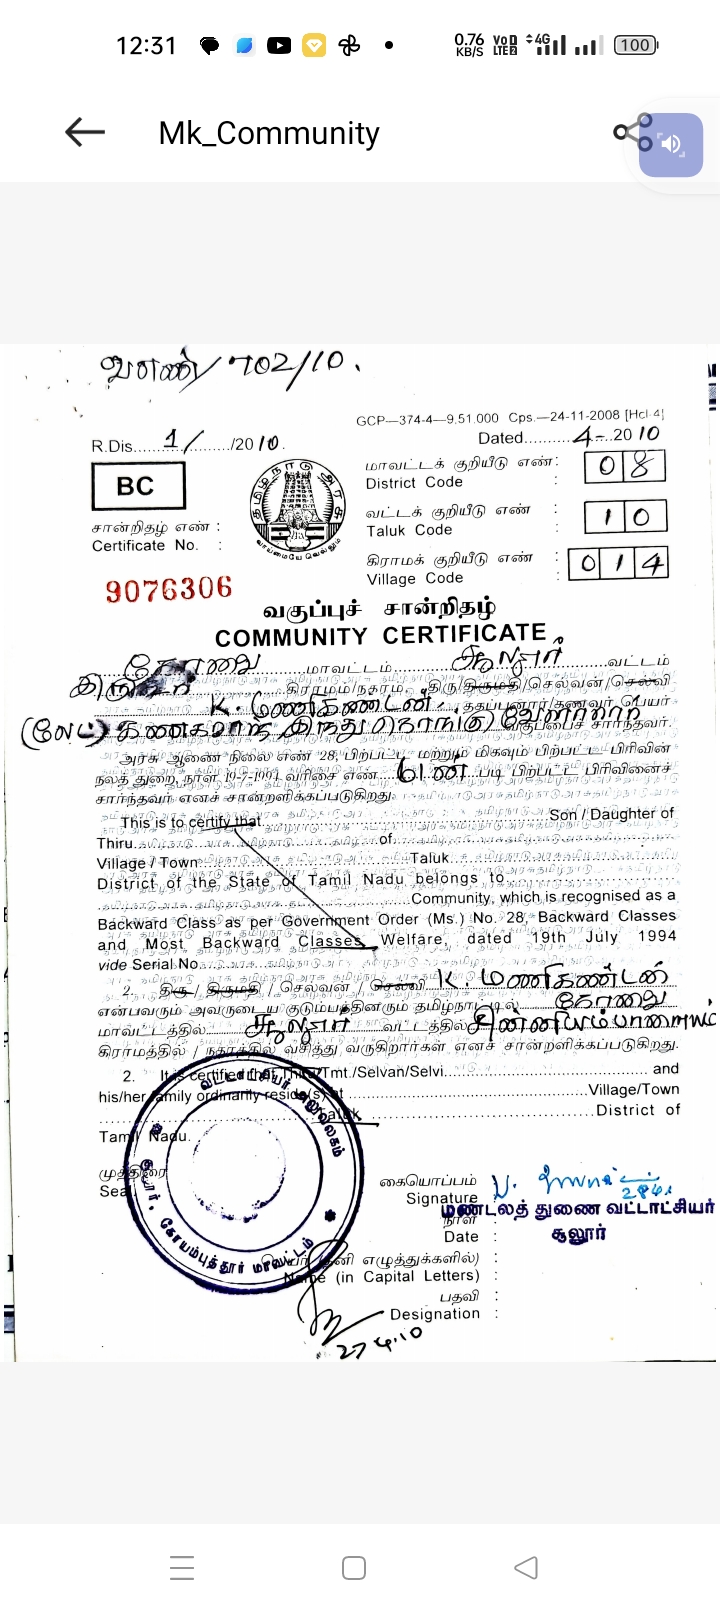 12:31
0.76 KB/S VoD LTE2 4G 100
Mk_Community
வஎண்/702/10.
GCP—374-4—9.51.000 Cps.—24-11-2008 [Hcl-4]
R.Dis.......1/......../2010.
Dated..........4-..2010
BC
மாவட்டக் குறியீடு எண் :
District Code : 08
வட்டக் குறியீடு எண் :
Taluk Code : 10
கிராமக் குறியீடு எண் :
Village Code : 014
சான்றிதழ் எண் :
Certificate No. :
9076306
தமிழ்நாடு அரசு
வாய்மையே வெல்லும்
வகுப்புச் சான்றிதழ்
COMMUNITY CERTIFICATE
கோவை மாவட்டம் சூலூர் வட்டம்
கிராமம்/நகரம் திரு/திருமதி/செல்வன்/செல்வி
K. மணிகண்டன் தகப்பனார்/கணவர் பெயர்
(லேட்) கனகராஜ் இந்து கொங்கு வேளாளர் வகுப்பைச் சார்ந்தவர்.
அரசு ஆணை நிலை எண் 28, பிற்பட்ட மற்றும் மிகவும் பிற்பட்ட பிரிவின்
நலத் துறை, நாள் 19-7-1994 வரிசை எண் படி பிற்பட்ட பிரிவினைச்
சார்ந்தவர் எனச் சான்றளிக்கப்படுகிறது.
This is to certify that Son / Daughter of
Thiru of
Village / Town Taluk
District of the State of Tamil Nadu belongs to
Community, which is recognised as a
Backward Class as per Government Order (Ms.) No. 28, Backward Classes
and Most Backward Classes Welfare, dated 19th July 1994
vide Serial No.
2. திரு / திருமதி / செல்வன் / செல்வி K. மணிகண்டன்
என்பவரும் அவருடைய குடும்பத்தினரும் தமிழ்நாட்டில் கோவை
மாவட்டத்தில் சூலூர் வட்டத்தில்
கிராமத்தில் / நகரத்தில் வசித்து வருகிறார்கள் எனச் சான்றளிக்கப்படுகிறது.
2. It is certified that Thiru/Tmt./Selvan/Selvi and
his/her family ordinarily reside(s) at Village/Town
Taluk District of
Tamil Nadu.
முத்திரை
Seal
வட்டாட்சியர் அலுவலகம்
சூலூர், கோயம்புத்தூர் மாவட்டம்
கையொப்பம்
Signature :
மண்டலத் துணை வட்டாட்சியர்
நாள் :
Date :
சூலூர்
பெயர் (தனி எழுத்துக்களில்) :
Name (in Capital Letters) :
பதவி :
Designation :
27.4.10